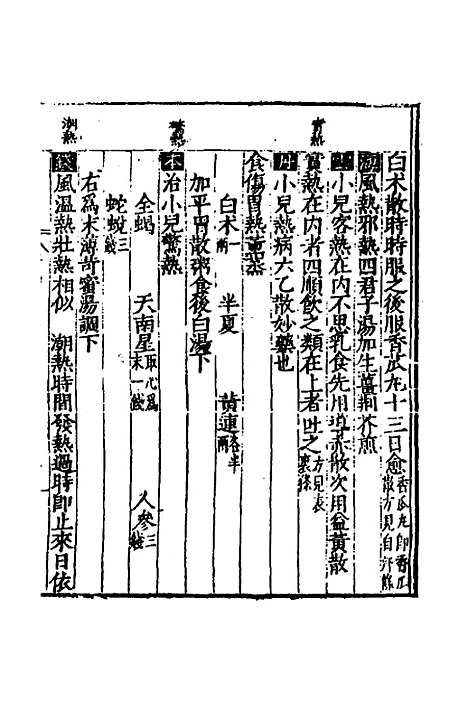 白术散時時服之後服香瓜丸十三日愈香瓜丸即香瓜散方見自汗條
風熱邪熱四君子湯加生薑荆芥煎
小兒客熱在内不思乳食先用導赤散次用益黄散
實熱在内者四順飲之類在上者吐之方見表裏條
小兒熱病六乙散妙藥也
食傷胃熱熏蒸
白术一兩 半夏 黄連各半兩
加平胃散粥食後白湯下
本 治小兒驚熱
全蝎 天南星取心爲末一錢 人參三錢
蛇蛻三錢
右爲末薄荷蜜湯調下
錢 風温熱壮熱相似 潮熱時間發熱過時即止來日依
實熱
驚熱
潮熱